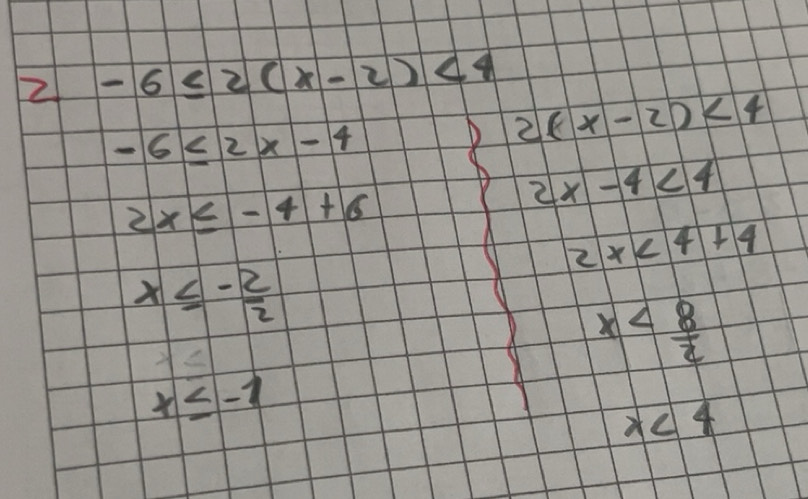 2 -6 ≤ 2(x-2) < 4
-6 ≤ 2x - 4
2x ≤ -4 + 6
x ≤ -2/2
x ≤
x ≤ -1
2(x-2) < 4
2x - 4 < 4
2x < 4 + 4
x < 8/2
x < 4